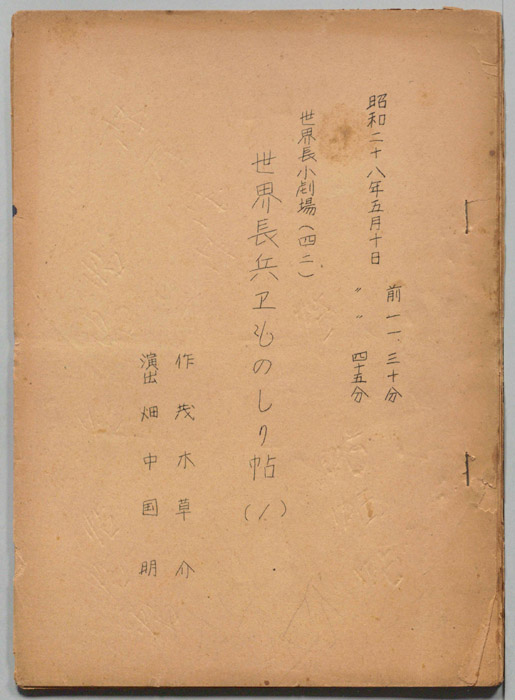 昭和二十八年五月十日
前一一、三十分
〃 〃 四十五分
世界長小劇場(四二)
世界長兵ヱものしり帖
(1)
作 茂木草介
演出 畑中国明